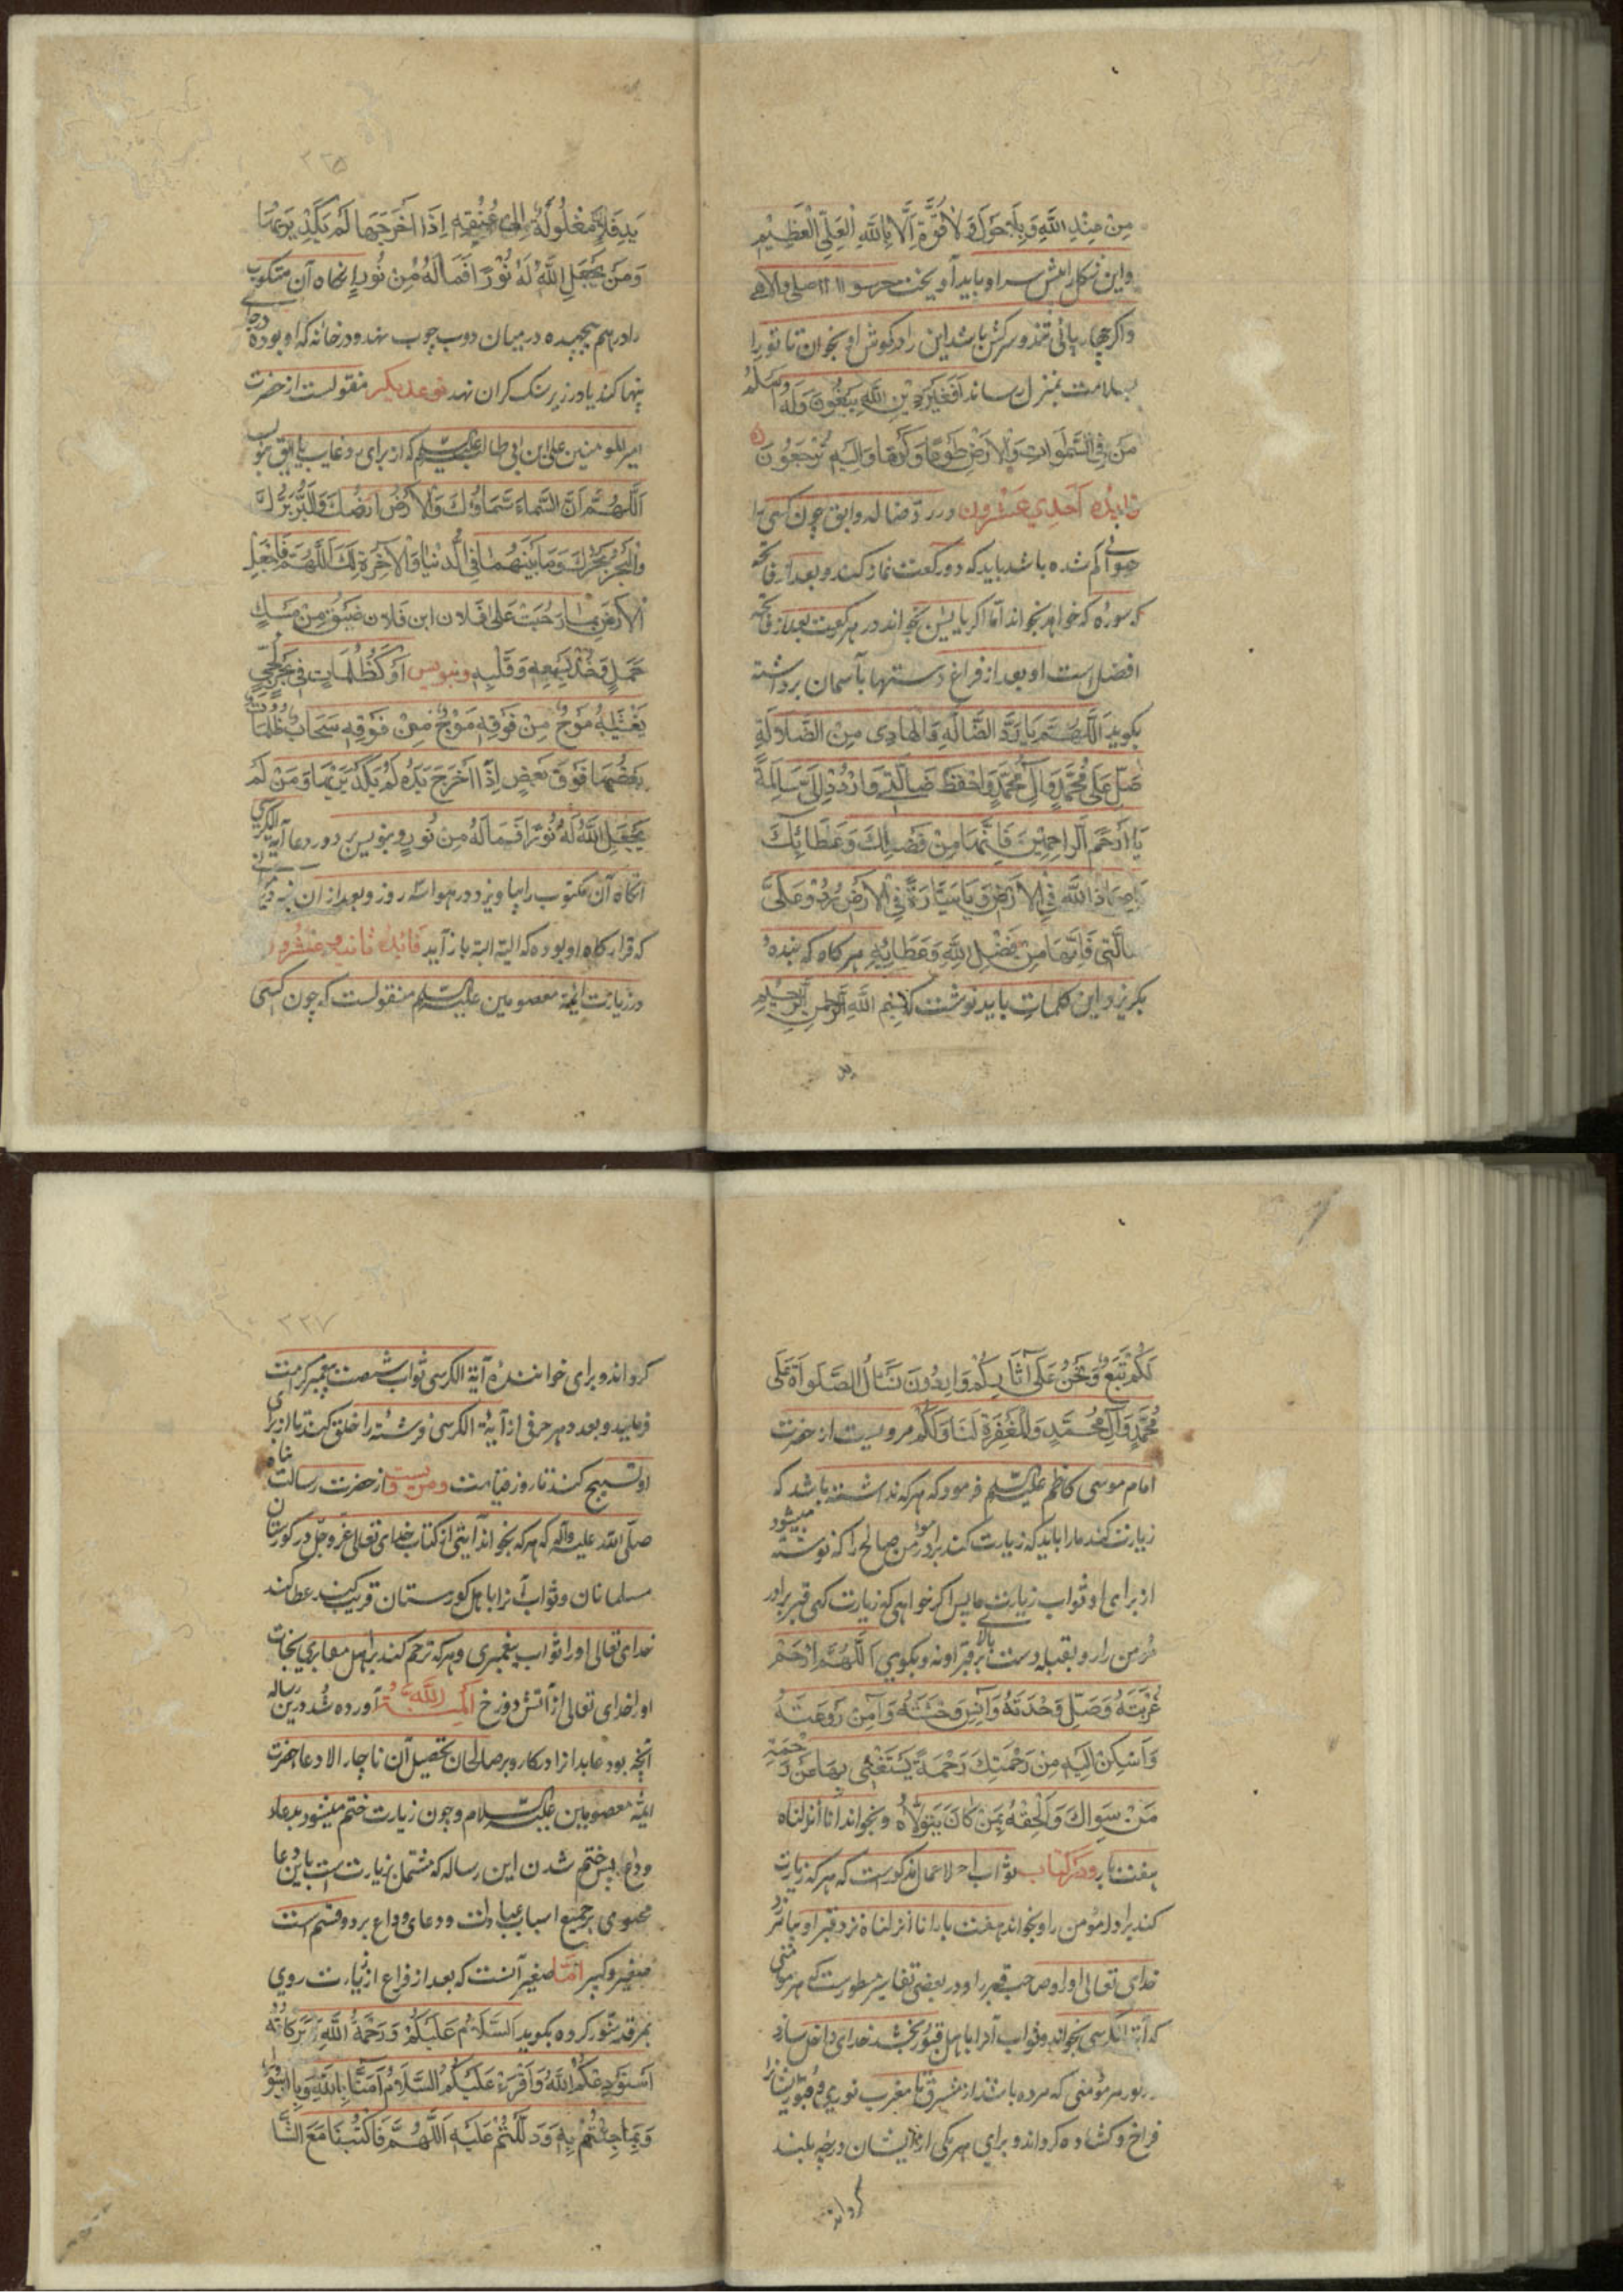 مِنْ عِنْدِ اللَّهِ وَبِلَا حَوْلَ وَلَا قُوَّةَ إِلَّا بِاللَّهِ الْعَلِيِّ الْعَظِيمِ
واین شکل را پیش سر او باید آویخت
واکر چهارپائی تند و سرکش باشد این را در کوش او بخوان تا تورا
بسلامت بمنزل رساند أَفَغَيْرَ دِينِ اللَّهِ يَبْغُونَ وَلَهُ أَسْلَمَ
مَنْ فِي السَّمٰوَاتِ وَالْأَرْضِ طَوْعًا وَكَرْهًا وَإِلَيْهِ تُرْجَعُونَ
فایده احدی عشرون در رد ضاله وابق چون کسی را
حیوانی کم شده باشد باید که دو رکعت نماز کند و بعد از فاتحه
هر سوره که خواهد بخواند اما اکر یا یس بخواند در هر رکعت بعد از فاتحه
افضل است و بعد از فراغ دستها بآسمان برداشته
بکوید اَللّٰهُمَّ يَا رَادَّ الضَّالَّةِ وَالْهَادِي مِنَ الضَّلَالَةِ
صَلِّ عَلَى مُحَمَّدٍ وَآلِ مُحَمَّدٍ وَاحْفَظْ ضَالَّتِي وَارْدُدْ إِلَيَّ سَالِمَةً
يَا أَرْحَمَ الرَّاحِمِينَ فَإِنَّهَا مِنْ فَضْلِكَ وَعَطَائِكَ
يَا عِبَادَ اللَّهِ فِي الْأَرْضِ وَيَا سَيَّارَةً فِي الْأَرْضِ رُدُّوْ عَلَيَّ
ضالَّتِي فَإِنَّهَا مِنْ فَضْلِ اللَّهِ وَعَطَائِهِ هر کاه که بندهٔ
بکریزد این کلمات باید نوشت که بِسْمِ اللَّهِ الرَّحْمٰنِ الرَّحِيمِ
ید
۳۲۵
يَدِ فُلَانٍ مَغْلُولَةٌ إِلَى عُنُقِهِ إِذَا أَخْرَجَهَا لَمْ يَكَدْ يَرٰيهَا
وَمَنْ لَمْ يَجْعَلِ اللَّهُ لَهُ نُوْرًا فَمَا لَهُ مِنْ نُورٍ انکاه آن مکتوب
را درهم پیچیده در میان دو چوب نهد و در خانه که او بوده
پنهان کند یا در زیر سنک کران نهد نوع دیکر منقولست از حضرت
امیر المومنین علی ابن ابی طالب علیه السلام که از برای دعا غایب یا ابق بنویس
اَللّٰهُمَّ إِنَّ السَّمَاءَ سَمَاؤُكَ وَالْأَرْضَ أَرْضُكَ وَالْبَرَّ بَرُّكَ
وَالْبَحْرَ بَحْرُكَ وَمَا بَيْنَهُمَا فِي الدُّنْيَا وَالْآخِرَةِ لَكَ اَللّٰهُمَّ فَاجْعَلِ
الْأَرْضَ بِمَا رَحُبَتْ عَلَى فُلَانِ ابْنِ فُلَانٍ ضَيِّقْ مِنْ مَسْكِ
حَمَلٍ وَخُذْ بِسَمْعِهِ وَقَلْبِهِ وبنویس أَوْ كَظُلُمَاتٍ فِي بَحْرٍ لُجِّيٍّ
يَغْشٰيهُ مَوْجٌ مِنْ فَوْقِهِ مَوْجٌ مِنْ فَوْقِهِ سَحَابٌ ظُلُمَاتٌ
بَعْضُهَا فَوْقَ بَعْضٍ إِذَا أَخْرَجَ يَدَهُ لَمْ يَكَدْ يَرٰيهَا وَمَنْ لَمْ
يَجْعَلِ اللَّهُ لَهُ نُوْرًا فَمَا لَهُ مِنْ نُورٍ وبنویس بر دور دعا آیة الکرسی
انکاه آن مکتوب را بیاویزد در هوا سه روز و بعد از آن بنه در جائی
که قرارکاه او بوده که البته البته باز آید فائده ثانیه و عشرون
در زیارت ائمه معصومین علیه السلام منقولست که چون کسی
لَكُمْ تَبَعٌ وَنَحْنُ عَلَى آثَارِكُمْ وَارِدُونَ نَسْأَلُ الصَّلَوٰاةَ عَلَى
مُحَمَّدٍ وَآلِ مُحَمَّدٍ وَالْمَغْفِرَةَ لَنَا وَلَكُمْ مرویست از حضرت
امام موسی کاظم علیه السلام فرمود که هر که نداشته باشد که
زیارت کند ما را باید که زیارت کند برادر مومن صالح را که نوشته میشود
از برای او ثواب زیارت ما پس اکر خواهی که زیارت کنی قبر برادر
مُؤمن را رو بقبله دست بالای قبر او نه و بکوی اَللّٰهُمَّ ارْحَمْ
غُرْبَتَهُ وَصِلْ وَحْدَتَهُ وَآنِسْ وَحْشَتَهُ وَآمِنْ رَوْعَتَهُ
وَأَسْكِنْ إِلَيْهِ مِنْ رَحْمَتِكَ رَحْمَةً يَسْتَغْنِي بِهَا عَنْ رَحْمَةِ
مَنْ سِوَاكَ وَأَلْحِقْهُ بِمَنْ كَانَ يَتَوَلَّاهُ وبخواند انا أنزلناه
هفت بار و در کتاب ثواب الاعمال مذکور است که هر که زیارت
کند برادر مؤمن را و بخواند هفت بار انا انزلناه نزد قبر او بیامرزد
خدای تعالی او را و صاحب قبر را و در بعضی تفاسیر مسطور است که هر مؤمنی
که آیة الکرسی بخواند و ثواب آنرا باهل قبور بخشد خدای داخل سازد
در کور هر مؤمنی که مرده باشد از مشرق تا مغرب نوری و قبور ایشانرا
فراخ و کشاده کرداند و برای هر یکی از ایشان درجهٔ بلند
کرداند
۳۲۷
کرداند و برای خوانندهٔ آیة الکرسی ثواب شصت پیغمبر کرامت
فرماید و بعدد هر حرفی از آیة الکرسی فرشتهٔ را خلق کند تا از برای
او تسبیح کند تا روز قیامت و مرویست از حضرت رسالت پناه
صلّی الله علیه وآله که هر که بخواند آیتی از کتاب خدای تعالی عزّ وجلّ در کورستان
مسلمانان و ثواب آنرا باهل کورستان قربت کند عطا کند
خدای تعالی او را ثواب پیغمبری و هر که ترحم کند بر اهل مقابر نجات
او را خدای تعالی از آتش دوزخ اَلْمِنَّةُ لِلّٰه آورده شد درین رساله
آنچه بود عابد انرا در کار و بر صالحان تحصیل آن ناچار الا دعا حضرت
ائمه معصومین علیه السلام و چون زیارت ختم میشود بدعاء
وداع پس ختم شدن این رساله که مشتمل بر زیارت است باین دعا
محتوی بر جمیع اسباب عبادات و دعای وداع بر دو قسم است
صغیر و کبیر امّا صغیر آنست که بعد از فراغ از زیارت روی
بمرقد منور کرده بکوید اَلسَّلَامُ عَلَيْكُمْ وَرَحْمَةُ اللَّهِ وَبَرَكَاتُهُ
أَسْتَوْدِعُكُمُ اللَّهَ وَأَقْرَءُ عَلَيْكُمُ السَّلَامُ آمَنَّا بِاللَّهِ وَبِالرَّسُولِ
وَبِمَا جِئْتُمْ بِهِ وَدَلَلْتُمْ عَلَيْهِ اَللّٰهُمَّ فَاكْتُبْنَا مَعَ الشَّا